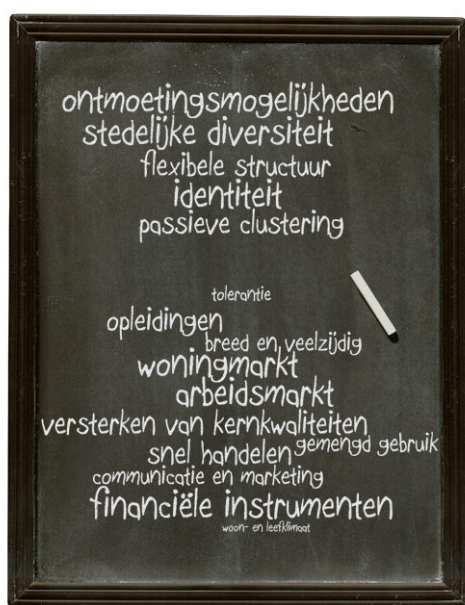 ontmoetingsmogelijkheden
stedelijke diversiteit
flexibele structuur
identiteit
passieve clustering
tolerantie
opleidingen
breed en veelzijdig
woningmarkt
arbeidsmarkt
versterken van kernkwaliteiten
snel handelen
gemengd gebruik
communicatie en marketing
financiële instrumenten
woon- en leefklimaat